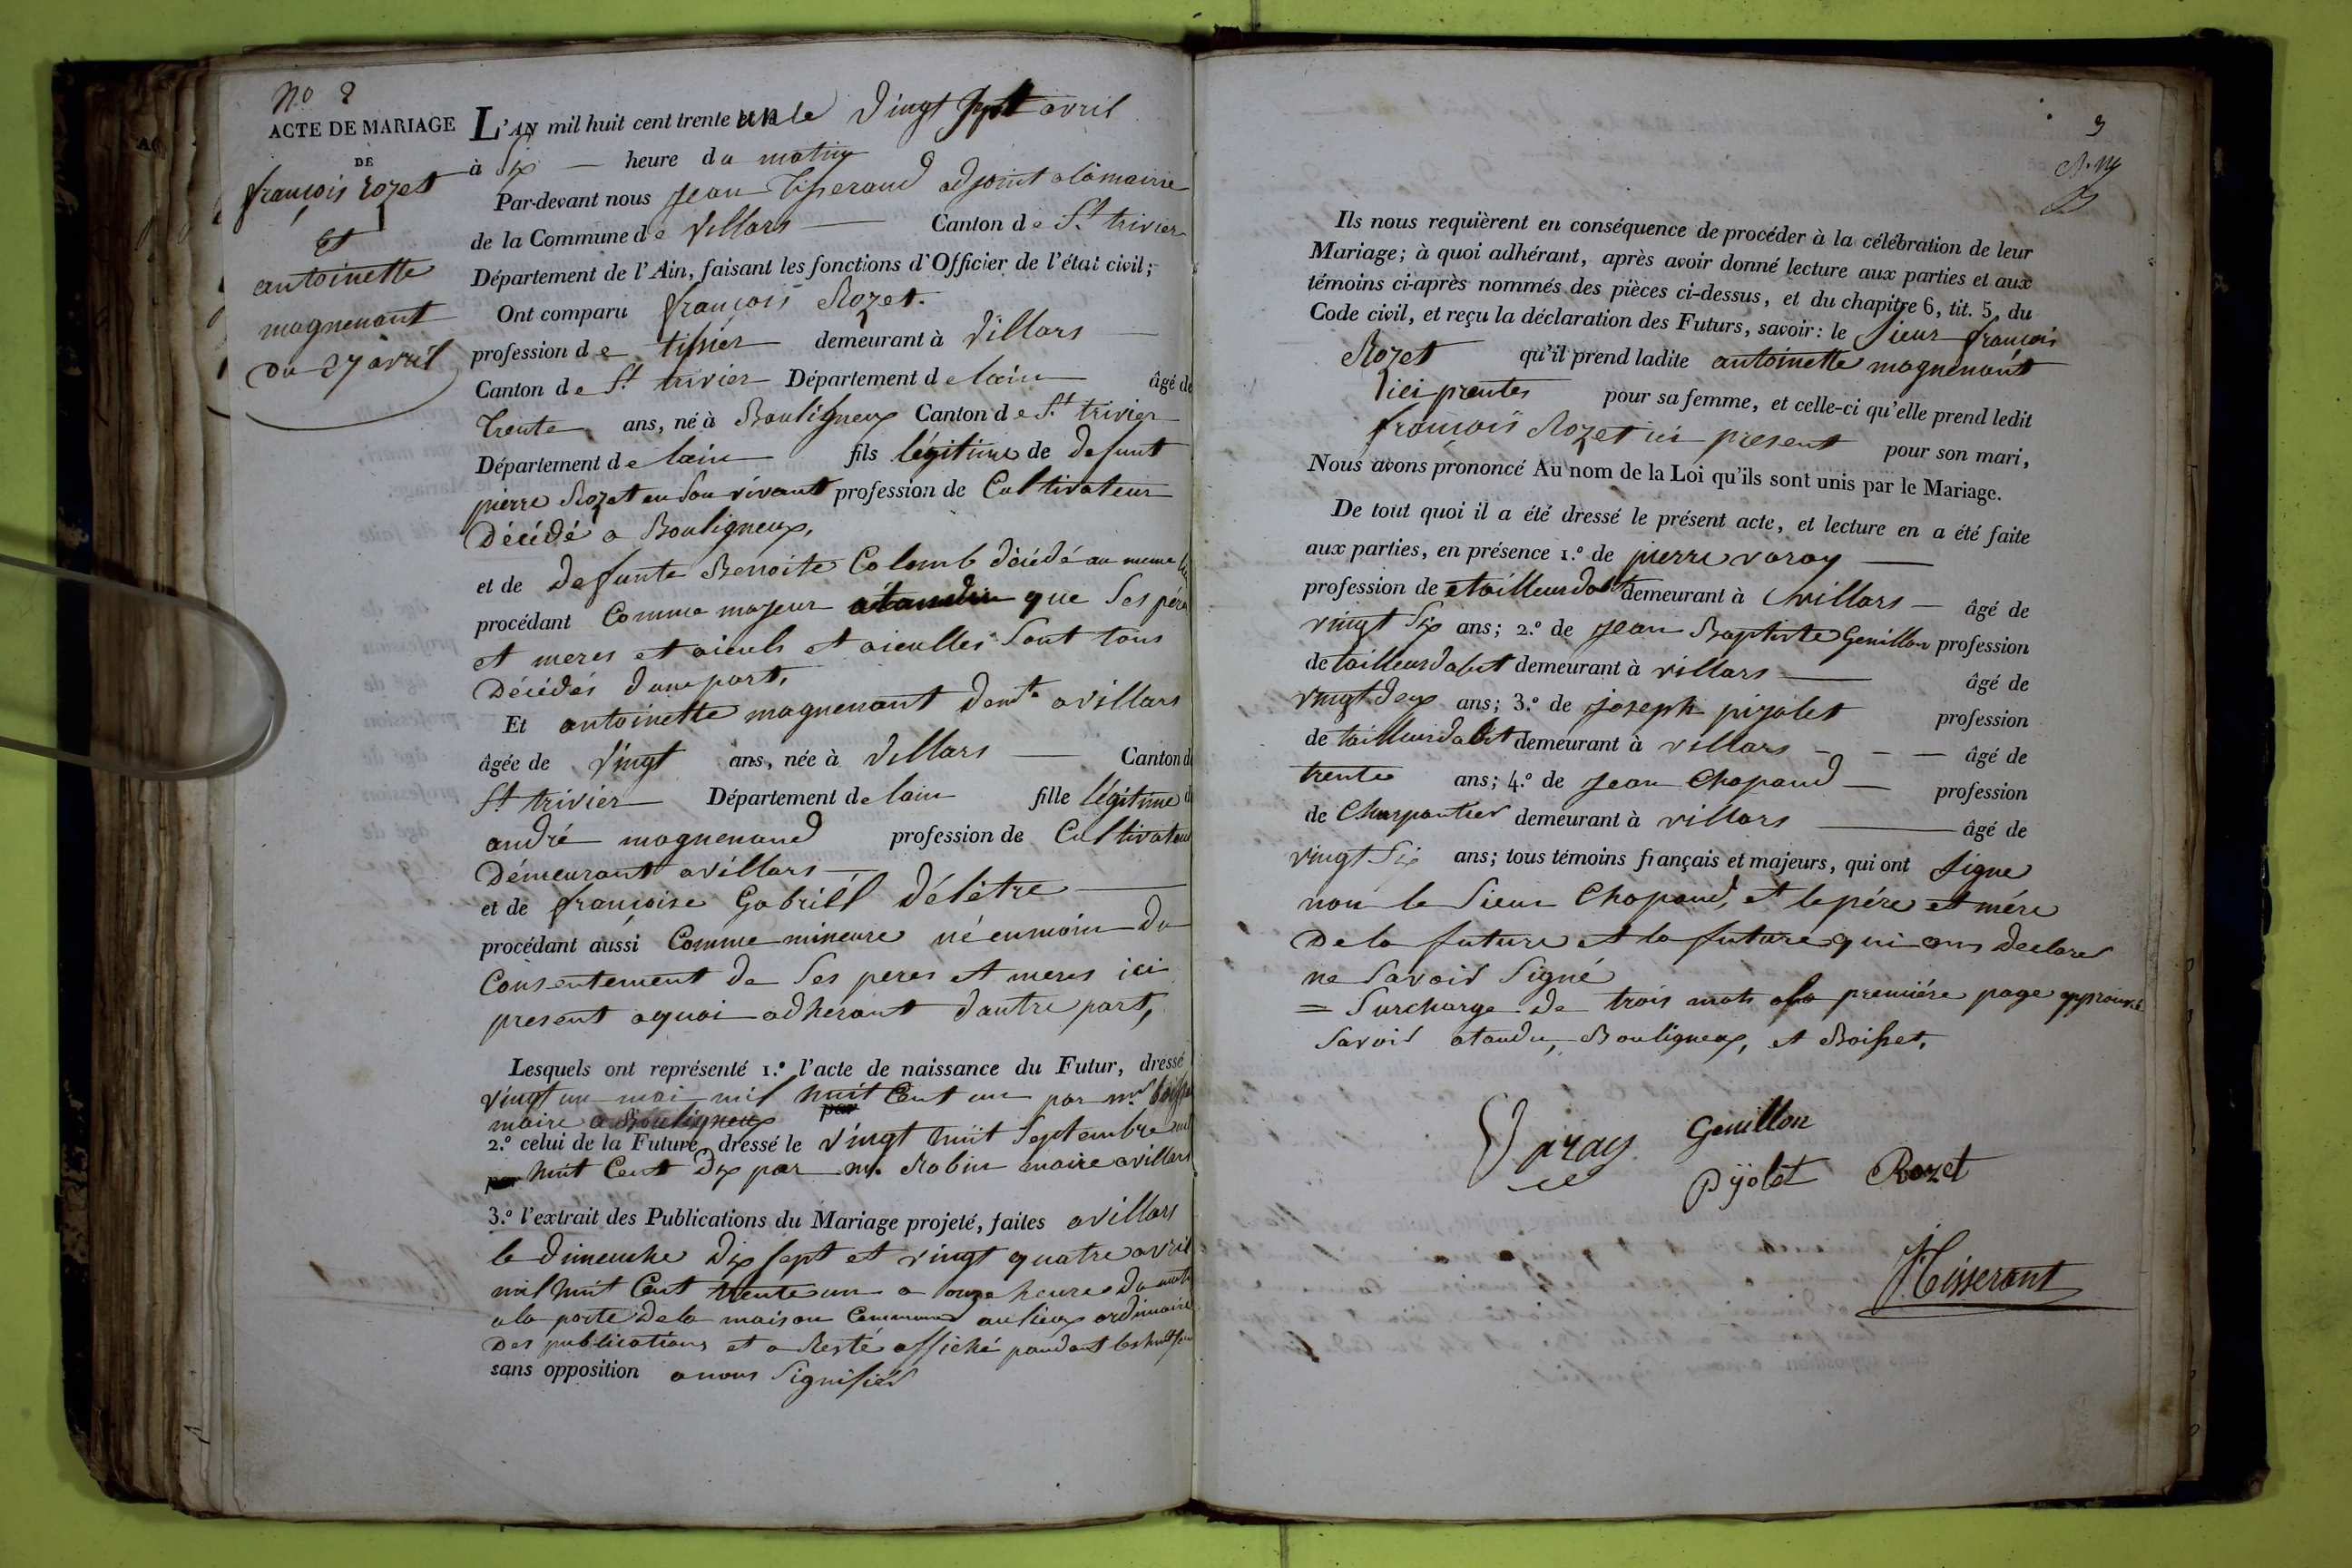 No 2
ACTE DE MARIAGE
DE
françois rozet
Et
antoinette
magnenant
Du 27 avril
L'AN mil huit cent trente un le Vingt Sept avril
à Six — heure du matin
Par-devant nous Jean Tisserand adjoint a la mairie
de la Commune de Villars — Canton de St. trivier
Département de l'Ain, faisant les fonctions d'Officier de l'état civil;
Ont comparu françois Rozet.
profession de tissier demeurant à Villars —
Canton de St. trivier Département de lain âgé de
Trente ans, né à Bouligneux Canton de St. trivier
Département de lain fils légitime de defunt
pierre Rozet en Son vivant profession de Cultivateur
Décédé a Bouligneux,
et de Defunte Benoite Colomb décédé au meme
procédant Comme majeur atandu que Ses pére
et meres et aieuls et aieulles Sont tous
Décédés dune part,
Et antoinette magnenant demt. a villars
âgée de Vingt ans, née à Villars — Canton de
St. trivier Département de lain fille légitime de
andré magnenand profession de Cultivateur
Démeurant a villars —
et de françoise Gabriel Délêtre —
procédant aussi Comme mineure néenmoin du
Consentement de Ses peres et meres ici
present aquoi adherant dautre part,
Lesquels ont représenté 1.º l'acte de naissance du Futur, dressé
Vingt un mai mil huit Cent un par mr.
maire a Bouligneux par
2.º celui de la Future, dressé le Vingt huit Septembre mil
par huit Cent Dix par m. Robin maire a villars
3.º l'extrait des Publications du Mariage projeté, faites a villars
le dimenche Dix Sept et vingt quatre avril
mil huit Cent trente un a onze heures du matin
a la porte De la maison Commune au lieux ordinaire
Des publications et a Resté affiché pandant les huit jour
sans opposition a nous Signifiés
3
Ils nous requièrent en conséquence de procéder à la célébration de leur
Mariage; à quoi adhérant, après avoir donné lecture aux parties et aux
témoins ci-après nommés des pièces ci-dessus, et du chapitre 6, tit. 5, du
Code civil, et reçu la déclaration des Futurs, savoir: le Sieur françois
Rozet qu'il prend ladite antoinette magnenant
ici prentes pour sa femme, et celle-ci qu'elle prend ledit
françois Rozet ici present pour son mari,
Nous avons prononcé Au nom de la Loi qu'ils sont unis par le Mariage.
De tout quoi il a été dressé le présent acte, et lecture en a été faite
aux parties, en présence 1.º de pierre varay —
profession de tailleur dabit demeurant à villars — âgé de
vingt Six ans; 2.º de Jean Baptiste Genillon profession
de tailleur dabit demeurant à villars — âgé de
vingt deux ans; 3.º de joseph pijolet profession
de tailleur dabit demeurant à villars — — — âgé de
trente ans; 4.º de Jean Chapand — profession
de Charpantier demeurant à villars — âgé de
vingt Six ans; tous témoins français et majeurs, qui ont Signe
non le Sieur Chapand, et le pére et mére
De la future et la future qui ons declarer
ne Savoir Signé
= Surcharge de trois mots a la premiére page approuvé
Savoir atandu, Bouligneux, et Boisset,
Varay Genillon
Pijolet Rozet
JTisserant